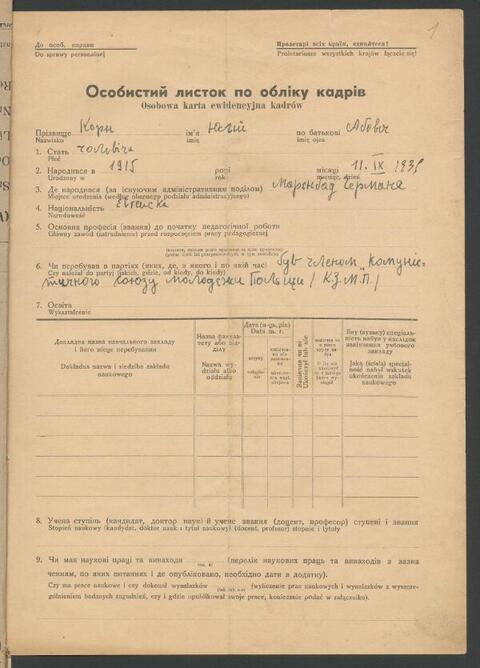 1
До особ. справи
Do sprawy personalnej
Пролетарі всіх країн, єднайтеся!
Proletariusze wszystkich krajów łączcie się!
Особистий листок по обліку кадрів
Osobowa karta ewidencyjna kadrów
Прізвище Корн ім'я Юлій по батькові
Nazwisko imię imię ojca
1. Стать чоловіча
Płeć
2. Народився в 1915 році місяці 11. IX
Urodzony w roku miesiąc, dzień
3. Де народився (за існуючим адміністративним поділом) Марєнбад Германа
Miejsce urodzenia (według obecnego podziału administracyjnego)
4. Національність Євреїска
Narodowość
5. Основна професія (звання) до початку педагогічної роботи
Główny zawód (zatrudnienie) przed rozpoczęciem pracy pedagogicznej
6. Чи перебував в партіях (яких, де, з якого і по якій час) був членом „Комуніс-
Czy należał do partyj (jakich, gdzie, od kiedy, do kiedy)
тичного союзу молодежи Польщи / К.З.М.П /
7. Освіта
Wykształcenie
Докладна назва навчального закладу і його місце перебування
Dokładna nazwa i siedziba zakładu naukowego
Назва факультету або відділу
Nazwa wydziału albo oddziału
Дата (м-ць, рік)
Data m. r.
вступу
Закінчив чи ні
Ukończył lub nie
Яку (вузьку) спеціальність набув у наслідок закінчення учбового закладу
Jaką (ścisłą) specjalność nabył wskutek ukończenia zakładu naukowego
8. Учена ступінь (кандидат, доктор наук) й учене звання (доцент, професор) ступні і звання
Stopień naukowy (kandydat, doktor nauk i tytuł naukowy) (docent, profesor) stopnie i tytuły
9. Чи має наукові праці та винаходи (перелік наукових праць та винаходів з зазна
так, ні
ченням, по яких питаннях і де опубліковано, необхідно дати в додатку).
Czy ma prace naukowe i czy dokonał wynalazków (wyliczenie prac naukowych i wynalazków z wyszcze-
(tak lub nie)
gólnieniem badanych zagadnień, czy i gdzie opublikował swoje prace, koniecznie podać w załączniku).